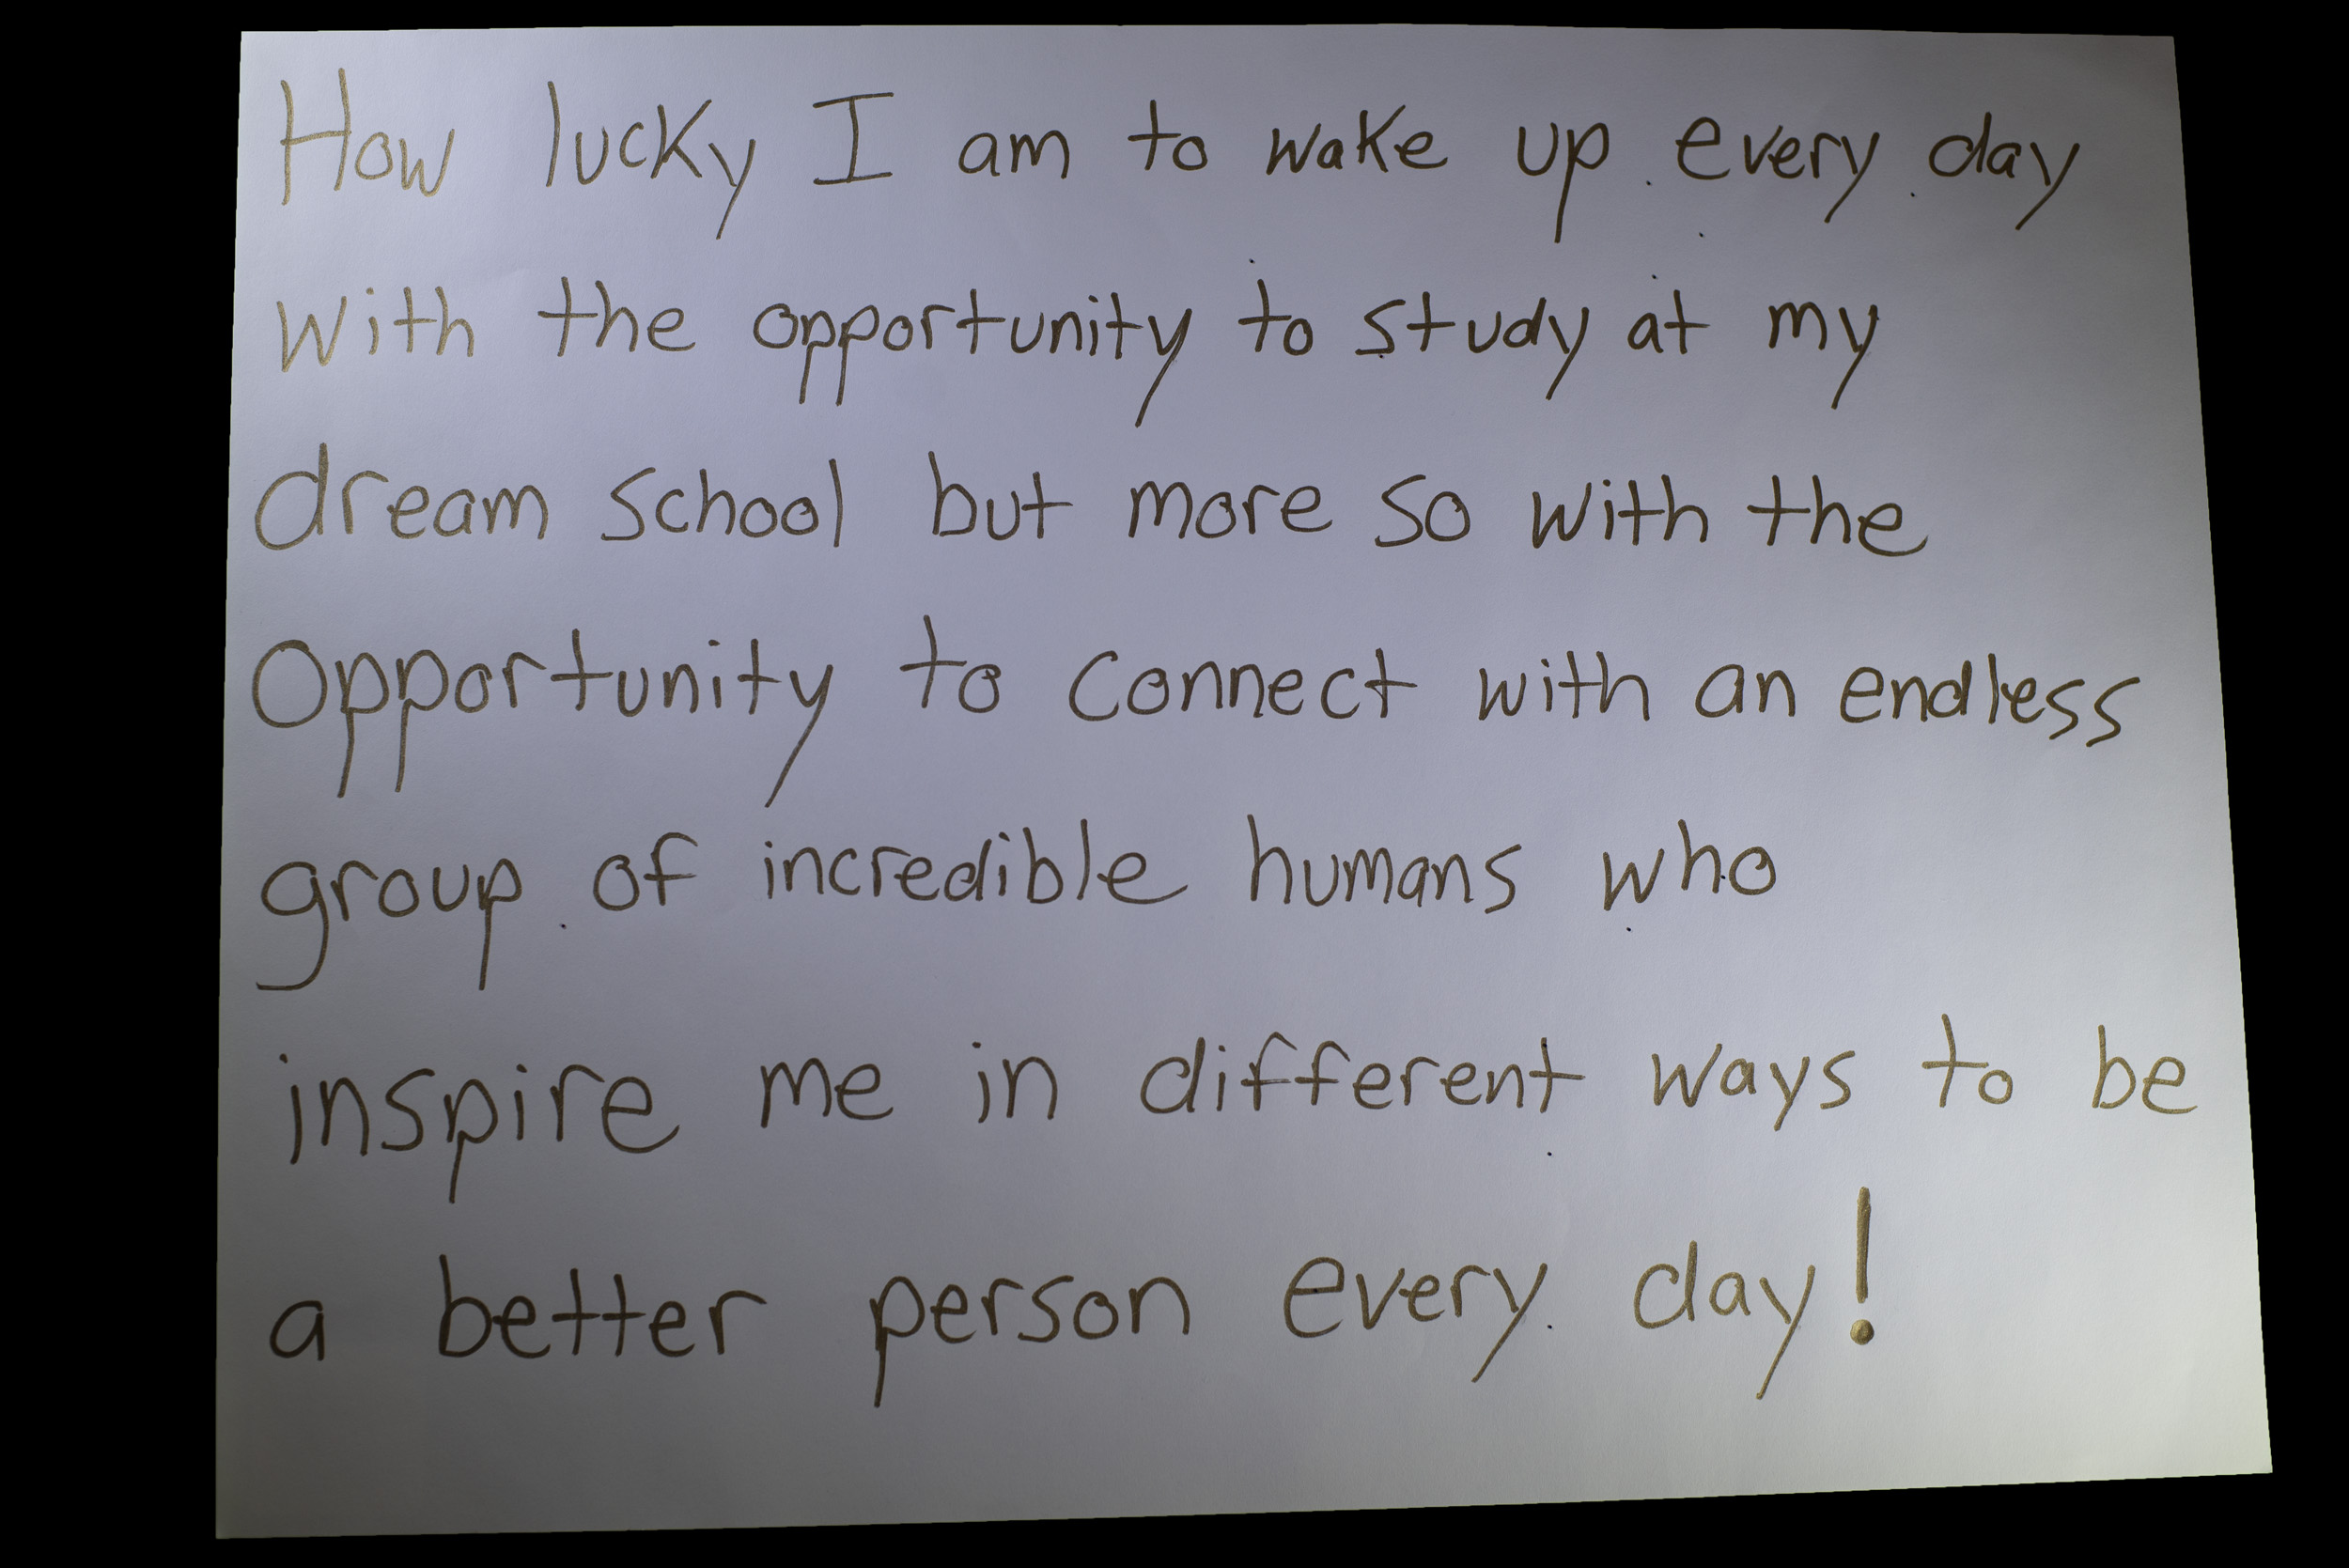 How lucky I am to wake up every day
with the opportunity to study at my
dream school but more so with the
opportunity to connect with an endless
group of incredible humans who
inspire me in different ways to be
a better person every day!